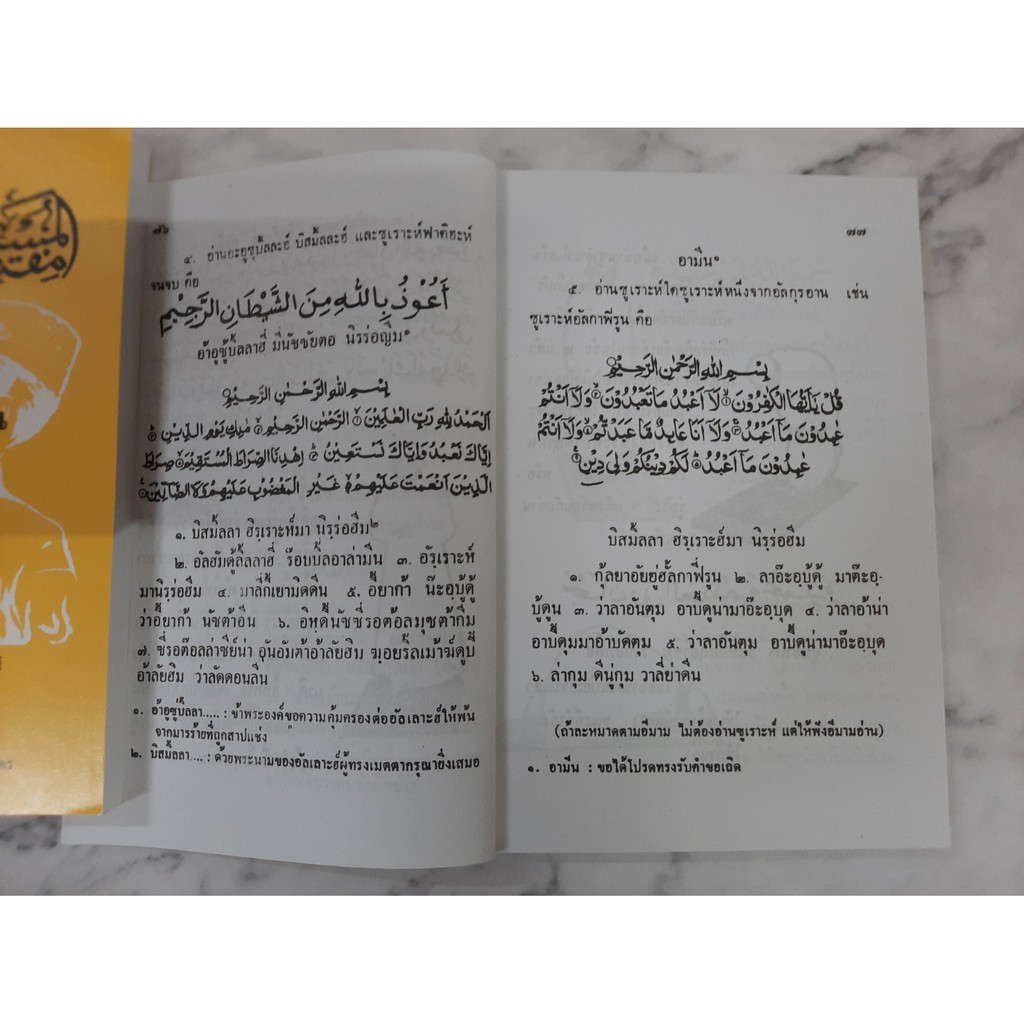 ๗๖
๔. อ่านอะอูซุบิ้ลละฮ์ บิสมิ้ลละฮ์ และซูเราะห์ฟาติฮะห์
จนจบ คือ
أَعُوْذُ بِاللهِ مِنَ الشَّيْطَانِ الرَّجِيْمِ
อ้าอูซู้บิ้ลลาฮี่ มี่นัชชัยตอ นิรร่อญีม๑
بِسْمِ اللهِ الرَّحْمٰنِ الرَّحِيْمِ
اَلْحَمْدُ لِلّٰهِ رَبِّ الْعٰلَمِيْنَ الرَّحْمٰنِ الرَّحِيْمِ مٰلِكِ يَوْمِ الدِّيْنِ
اِيَّاكَ نَعْبُدُ وَاِيَّاكَ نَسْتَعِيْنُ اِهْدِنَا الصِّرَاطَ الْمُسْتَقِيْمَ صِرَاطَ
الَّذِيْنَ اَنْعَمْتَ عَلَيْهِمْ غَيْرِ الْمَغْضُوْبِ عَلَيْهِمْ وَلَا الضَّالِّيْنَ
๑. บิสมิ้ลลา ฮิรฺเราะห์มา นิรฺร่อฮีม๒
๒. อลิฮัมดู้ลิ้ลลาฮี่ ร๊อบบิ้ลอาล่ามีน ๓. อัรฺเราะห์
มานิรฺร่อฮีม ๔. มาลี่กิ้เยามิดดีน ๕. อี้ยาก้า น๊ะอฺบู้ดู้
ว่าอี้ยาก้า นัชต้าอีน ๖. อิหฺดินัซซี่รอต้อลมุซต้ากีม
๗. ซี่รอต๊อลล่าซี่ย์น่า อุนอัมต้าอ้าลัยฮิม ฆฺอยริ้ลเม้าฆ์ดู่บี้
อ้าลัยฮิม ว่าลัดดอนลีน
๑. อ้าอูซู่บิ้ลลา.....: ข้าพระองค์ขอความคุ้มครองต่ออัลเลาะฮ์ให้พ้น
จากมารร้ายที่ถูกสาปแช่ง
๒. บิสมิ้ลลา....: ด้วยพระนามของอัลเลาะฮ์ผู้ทรงเมตตากรุณายิ่งเสมอ
๗๗
อามีน๑
๕. อ่านซูเราะห์ใดซูเราะห์หนึ่งจากอัลกุรอาน เช่น
ซูเราะห์อัลกาฟิรูน คือ
بِسْمِ اللهِ الرَّحْمٰنِ الرَّحِيْمِ
قُلْ يٰاَيُّهَا الْكٰفِرُوْنَ لَا اَعْبُدُ مَا تَعْبُدُوْنَ وَلَا اَنْتُمْ
عٰبِدُوْنَ مَا اَعْبُدُ وَلَا اَنَا عَابِدٌ مَّا عَبَدْتُّمْ وَلَا اَنْتُمْ
عٰبِدُوْنَ مَا اَعْبُدُ لَكُمْ دِيْنُكُمْ وَلِيَ دِيْنِ
บิสมิ้ลลา ฮิรฺเราะฮ์มา นิรฺร่อฮีม
๑. กุ้ลยาอัยยู่ฮั้ลกาฟี่รูน ๒. ลาอ๊ะอฺบู้ดู้ มาต๊ะอฺ-
บู้ดูน ๓. ว่าลาอันตุม อาบี้ดูน่ามาอ๊ะอฺบุด ๔. ว่าลาอ้าน่า
อาบี้ดุมมาอ้าบัดตุม ๕. ว่าลาอันตุม อาบี้ดูน่ามาอ๊ะอฺบุด
๖. ล่ากุม ดีนู่กุม วาลี่ย่าดีน
(ถ้าละหมาดตามอิมาม ไม่ต้องอ่านซูเราะห์ แต่ให้ฟังอิมามอ่าน)
๑. อามีน : ขอได้โปรดทรงรับคำขอเถิด